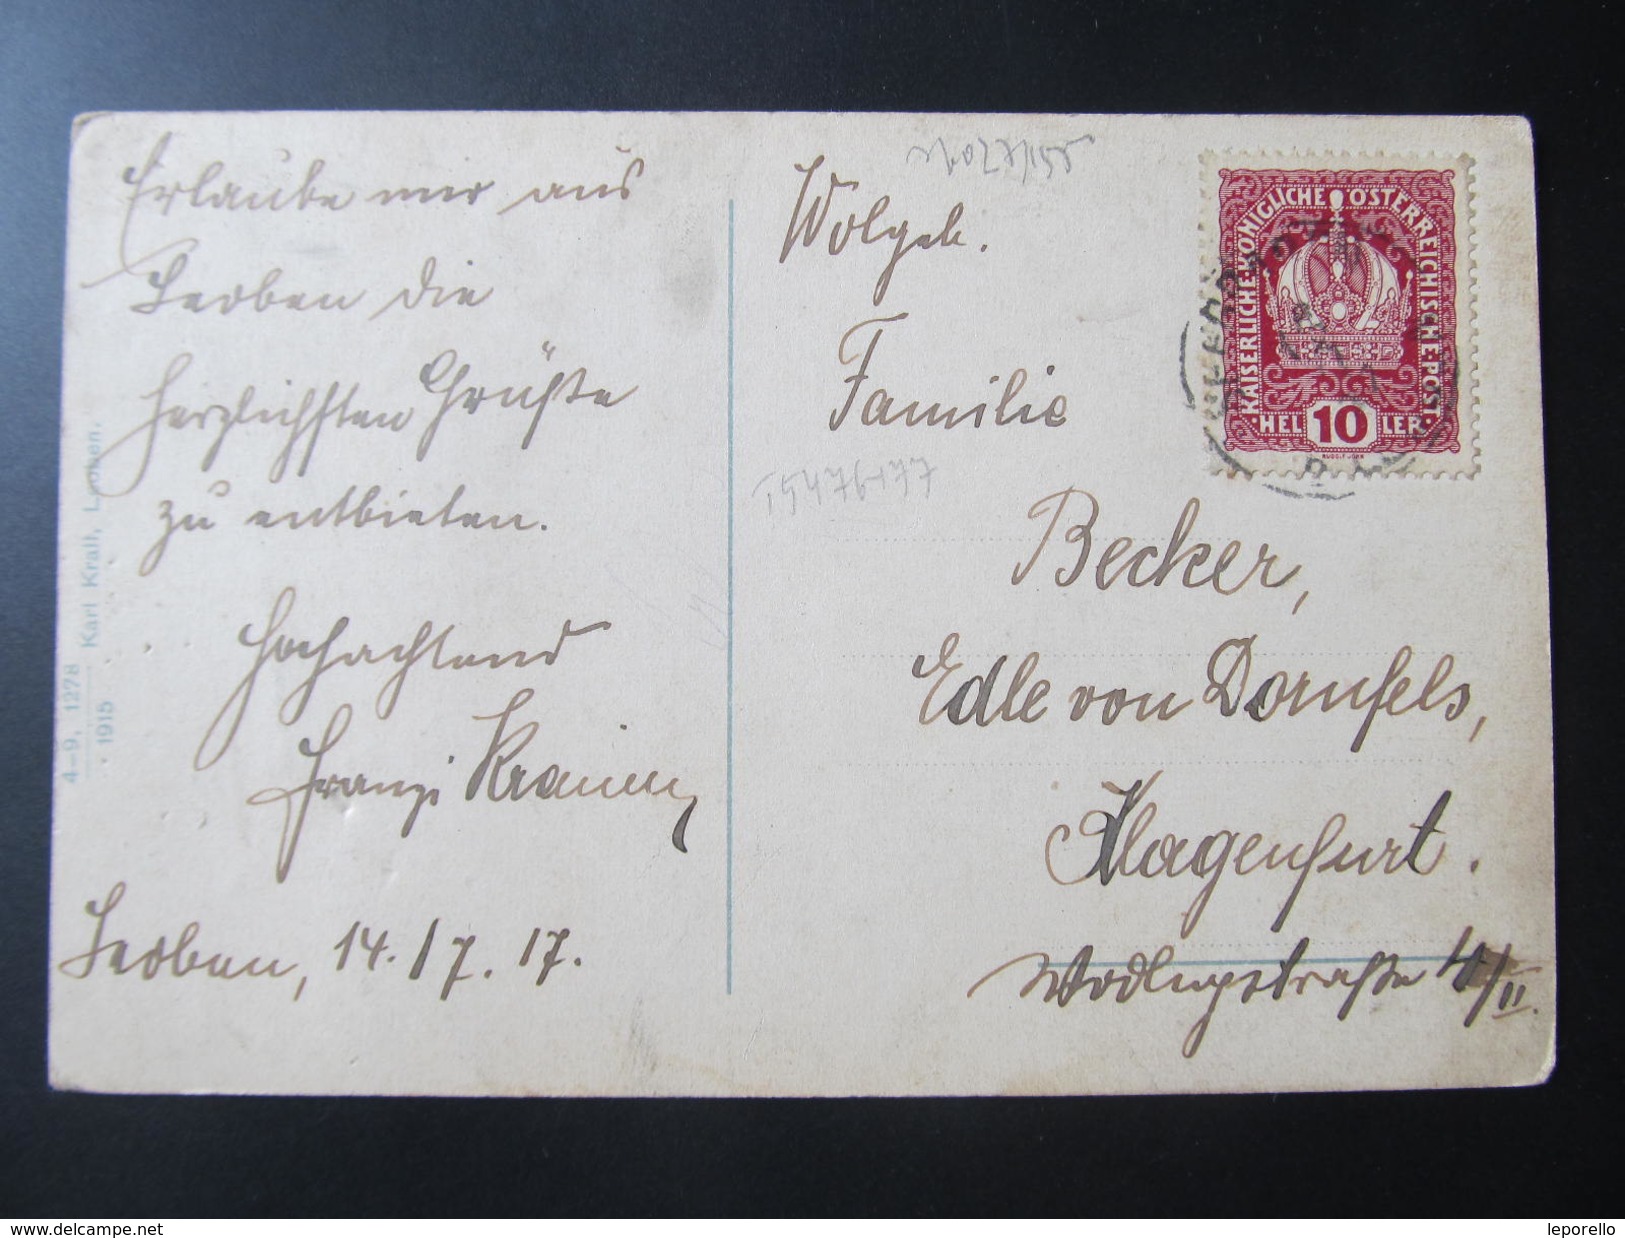 Erlaube mir aus
Leoben die
herzlichsten Grüße
zu entbieten.
Hochachtend
Franzi
Leoben, 14./7. 17.
4-9, 1278
1915
Karl Krall, Leoben.
Wolgeb.
Familie
15476177
Becker,
Edle von Dornfels,
Klagenfurt.
4/II.
KAISERLICHE·KÖNIGLICHE ÖSTERREICHISCHE·POST·
HEL 10 LER
www.delcampe.net
leporello